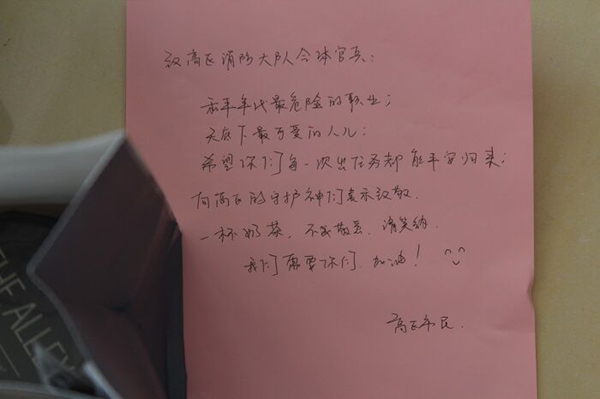 致高区消防大队全体官兵:
和平年代最危险的职业;
天底下最可爱的人儿;
希望你们每一次出任务都能平安归来;
向高区的守护神们表示致敬.
一杯奶茶,不成敬意,请笑纳.
我们需要你们,加油!
高区市民.
THE ALLEY